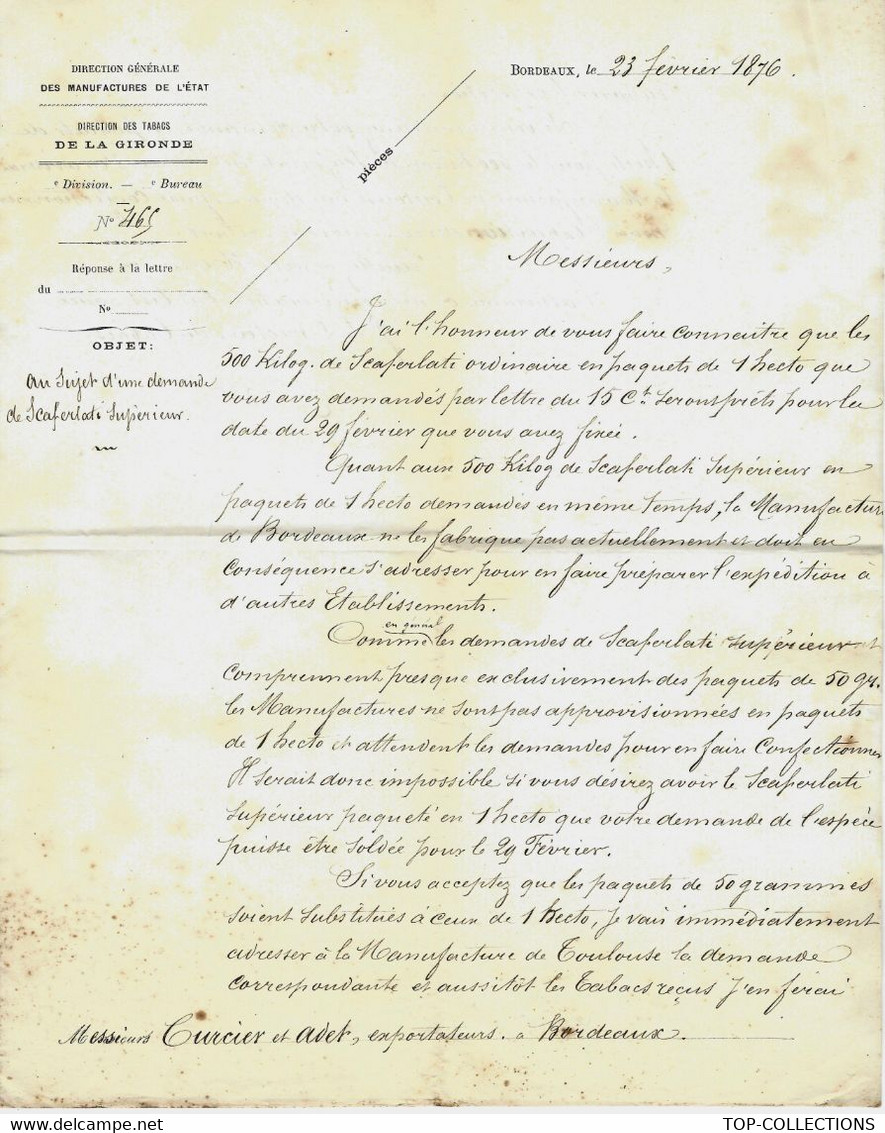 DIRECTION GÉNÉRALE
DES MANUFACTURES DE L'ÉTAT
DIRECTION DES TABACS
DE LA GIRONDE
e Division. — e Bureau
No 465
Réponse à la lettre
du
No
OBJET:
au Sujet d'une demande
de Scaferlati Supérieur.
pièces
BORDEAUX, le 23 février 1876.
Messieurs,
J'ai l'honneur de vous faire connaitre que les
500 Kilog. de Scaferlati ordinaire en paquets de 1 hecto que
vous avez demandés par lettre du 15 Ct. seront prêts pour la
date du 29 février que vous avez fixée.
Quant aux 500 Kilog de Scaferlati Supérieur en
paquets de 1 hecto demandés en même temps, la Manufacture
de Bordeaux ne les fabrique pas actuellement et doit en
conséquence s'adresser pour en faire préparer l'expédition à
d'autres Etablissements.
Comme en général les demandes de Scaferlati supérieur
comprennent presque exclusivement des paquets de 50 gr.
les Manufactures ne sont pas approvisionnées en paquets
de 1 hecto et attendent les demandes pour en faire confectionner
Il serait donc impossible si vous désirez avoir le Scaferlati
supérieur paqueté en 1 hecto que votre demande de l'espèce
puisse être soldée pour le 29 Février.
Si vous acceptez que les paquets de 50 grammes
soient substitués à ceux de 1 hecto, je vais immédiatement
adresser à la Manufacture de Toulouse la demande
correspondante et aussitôt les Tabacs reçus j'en ferai
Messieurs Curcier et Adet, exportateurs. a Bordeaux.
TOP-COLLECTIONS